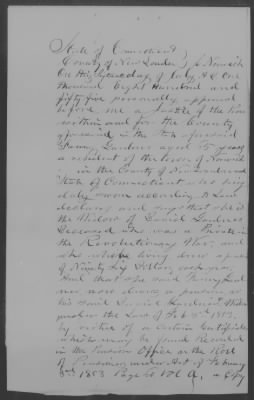 State of Connecticut }
County of New London } ss Norwich
On this day of July A D One
thousand Eight Hundred and
fifty five personally appeared
before me a Justice of the
within and for the County
aforesaid in the State aforesaid
Fanny aged 55 years
a resident of the town of Norwich
in the County of New London and
State of Connecticut who being
duly sworn according to Law
declares and says that she is
the Widow of Daniel
Deceased who was a Private in
the Revolutionary War, and
who whilst living drew a pension
of Ninety Six Dollars each year
And that she said Fanny
now draws a pension as
his said Daniel Widow
under the Law of Feb 3rd 1853,
by virtue of a certain Certificate
which may be found Recorded
in the Pension Office on the Roll
of under Act of February
3rd 1853 Page Vol A, a Copy